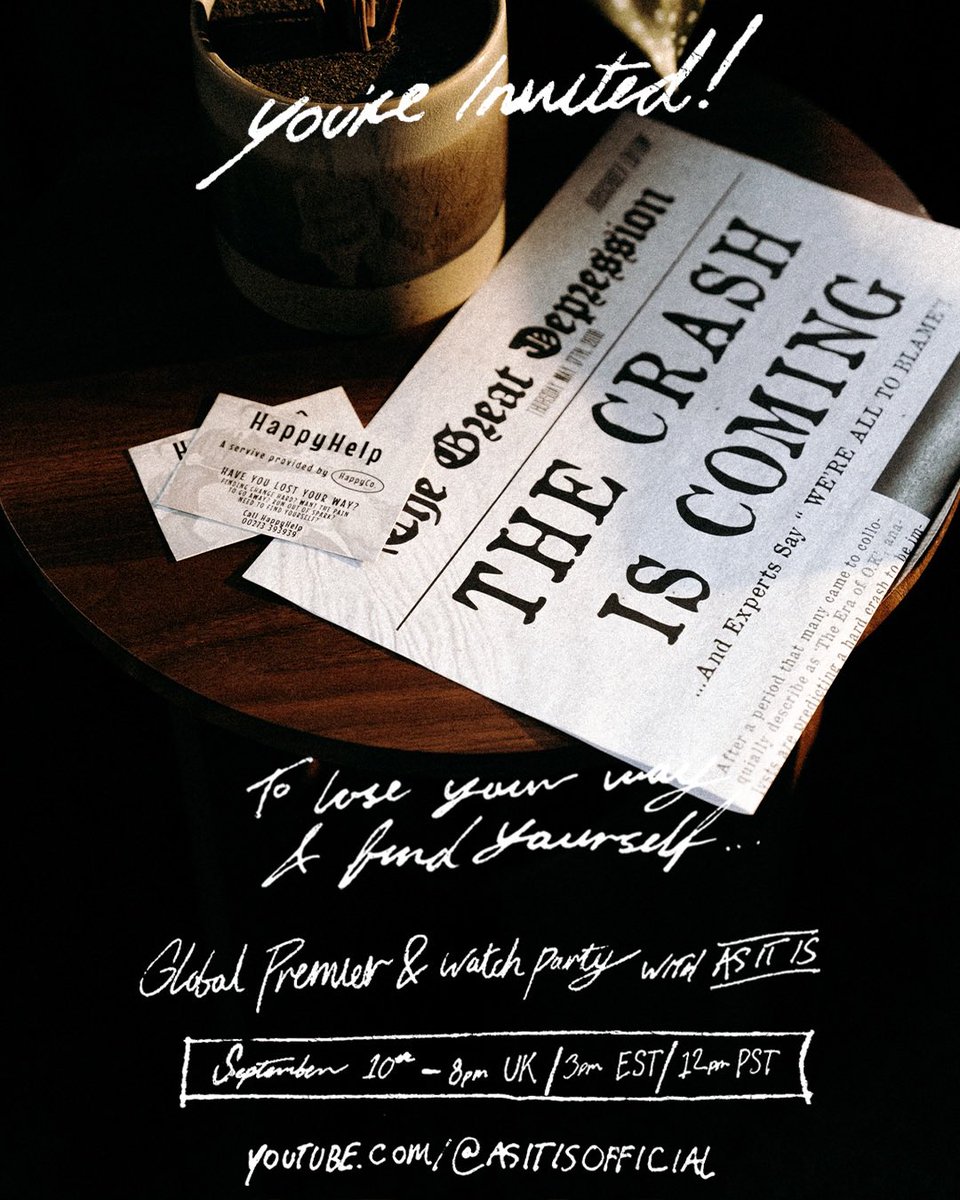 You're Invited!
The Great Depression
TUESDAY, MAY 17TH, 2018
THE CRASH
IS COMING
...And Experts Say " WE'RE ALL TO BLAME"
After a period that many came to collo-
quially describe as 'The Era of O.K', ana-
lysts are predicting a hard crash to be im-
HappyHelp
A servive provided by HappyCo.
HAVE YOU LOST YOUR WAY?
FINDING CHANGE HARD? WANT THE PAIN
TO GO AWAY? RUN OUT OF SPARK?
NEED TO FIND YOURSELF?
Call HappyHelp
00273 393939
To lose your way
& find yourself...
Global Premier & watch party with AS IT IS
September 10th - 8pm UK / 3pm EST / 12pm PST
YOUTUBE.COM/@ASITISOFFICIAL